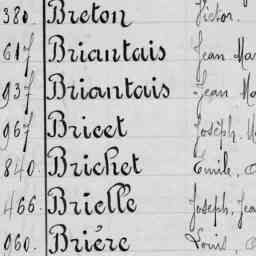 380 Breton Victor.
617 Briantais Jean Mar
937 Briantais Jean Ma
967 Bricet Joseph. M
840. Brichet Emile,
466. Brielle Joseph, Jea
960. Brière Louis,